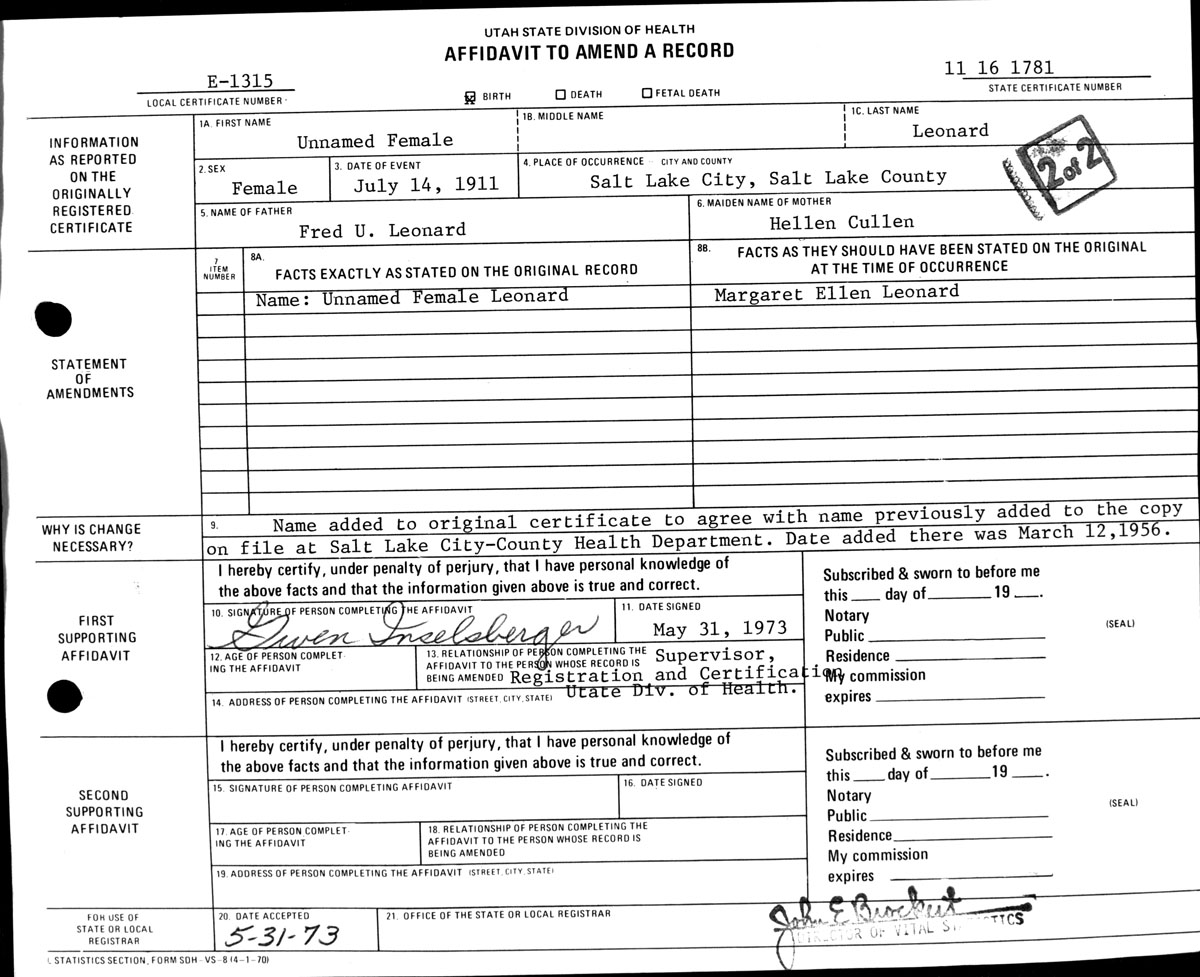 UTAH STATE DIVISION OF HEALTH
AFFIDAVIT TO AMEND A RECORD
E-1315
LOCAL CERTIFICATE NUMBER
BIRTH
DEATH
FETAL DEATH
11 16 1781
STATE CERTIFICATE NUMBER
INFORMATION
AS REPORTED
ON THE
ORIGINALLY
REGISTERED
CERTIFICATE
1A. FIRST NAME
Unnamed Female
1B. MIDDLE NAME
1C. LAST NAME
Leonard
2. SEX
Female
3. DATE OF EVENT
July 14, 1911
4. PLACE OF OCCURRENCE CITY AND COUNTY
Salt Lake City, Salt Lake County
2 of 2
5. NAME OF FATHER
Fred U. Leonard
6. MAIDEN NAME OF MOTHER
Hellen Cullen
STATEMENT
OF
AMENDMENTS
7
ITEM
NUMBER
8A.
FACTS EXACTLY AS STATED ON THE ORIGINAL RECORD
8B. FACTS AS THEY SHOULD HAVE BEEN STATED ON THE ORIGINAL
AT THE TIME OF OCCURRENCE
Name: Unnamed Female Leonard
Margaret Ellen Leonard
WHY IS CHANGE
NECESSARY?
9. Name added to original certificate to agree with name previously added to the copy
on file at Salt Lake City-County Health Department. Date added there was March 12,1956.
FIRST
SUPPORTING
AFFIDAVIT
I hereby certify, under penalty of perjury, that I have personal knowledge of
the above facts and that the information given above is true and correct.
10. SIGNATURE OF PERSON COMPLETING THE AFFIDAVIT
Gwen Inselsberger
11. DATE SIGNED
May 31, 1973
12. AGE OF PERSON COMPLET-
ING THE AFFIDAVIT
13. RELATIONSHIP OF PERSON COMPLETING THE
AFFIDAVIT TO THE PERSON WHOSE RECORD IS
BEING AMENDED
Supervisor,
Registration and Certification
Utate Div. of Health.
14. ADDRESS OF PERSON COMPLETING THE AFFIDAVIT (STREET, CITY, STATE)
Subscribed & sworn to before me
this ____ day of ________ 19 ___.
Notary
Public
(SEAL)
Residence
My commission
expires
SECOND
SUPPORTING
AFFIDAVIT
I hereby certify, under penalty of perjury, that I have personal knowledge of
the above facts and that the information given above is true and correct.
15. SIGNATURE OF PERSON COMPLETING AFFIDAVIT
16. DATE SIGNED
17. AGE OF PERSON COMPLET-
ING THE AFFIDAVIT
18. RELATIONSHIP OF PERSON COMPLETING THE
AFFIDAVIT TO THE PERSON WHOSE RECORD IS
BEING AMENDED
19. ADDRESS OF PERSON COMPLETING THE AFFIDAVIT (STREET, CITY, STATE)
Subscribed & sworn to before me
this ____ day of ________ 19 ____.
Notary
Public
(SEAL)
Residence
My commission
expires
FOR USE OF
STATE OR LOCAL
REGISTRAR
20. DATE ACCEPTED
5-31-73
21. OFFICE OF THE STATE OR LOCAL REGISTRAR
John E Brockert
DIRECTOR OF VITAL STATISTICS
STATISTICS SECTION, FORM SDH-VS-8 (4-1-70)